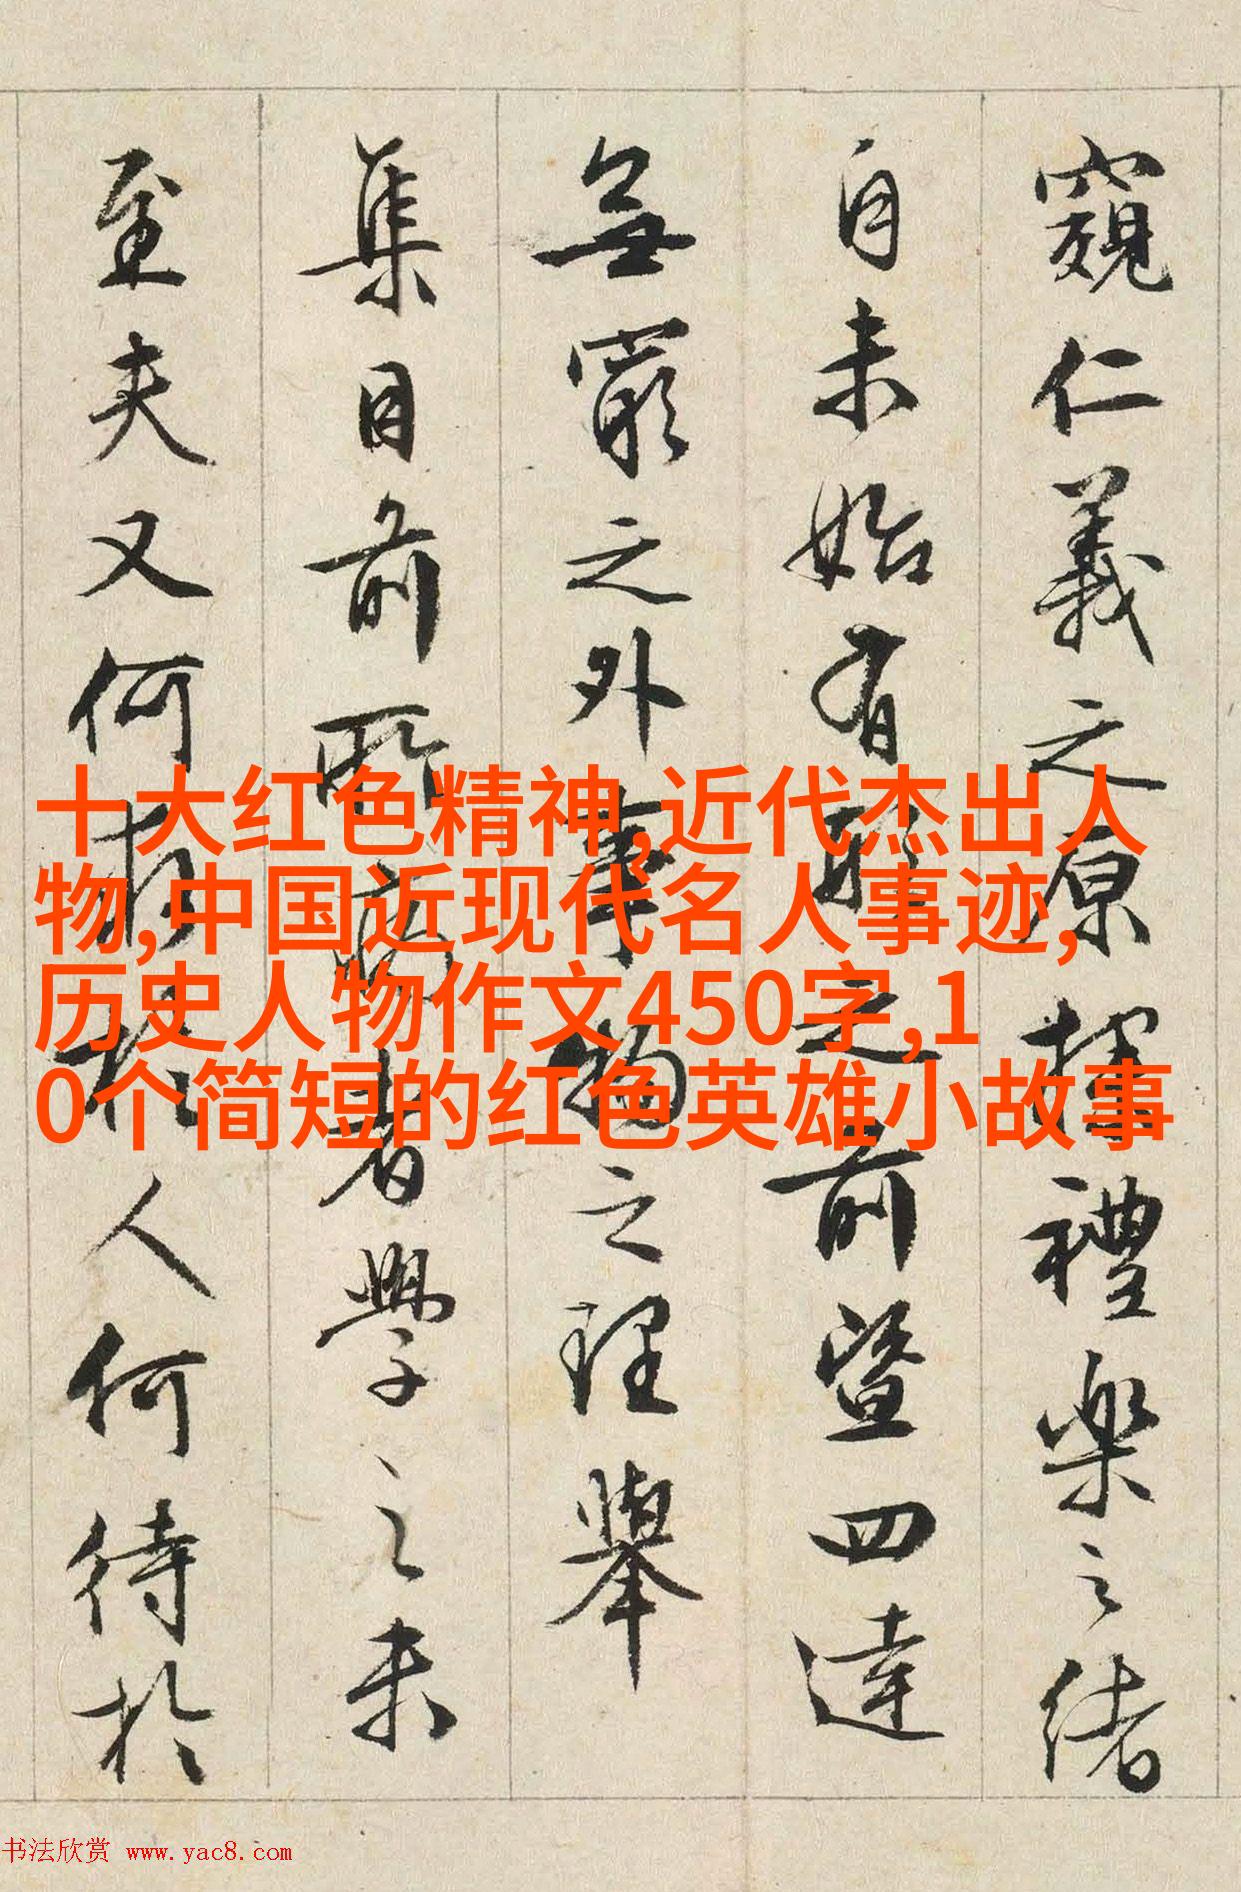 窺仁義之原探禮樂之緒
自未始有形之前暨四達
無窮之外事物之理舉
集目前所病者學之未
至夫又何求於人何待於
十大红色精神,近代杰出人
物,中国近现代名人事迹,
历史人物作文450字,1
0个简短的红色英雄小故事
书法欣赏 www.yac8.com